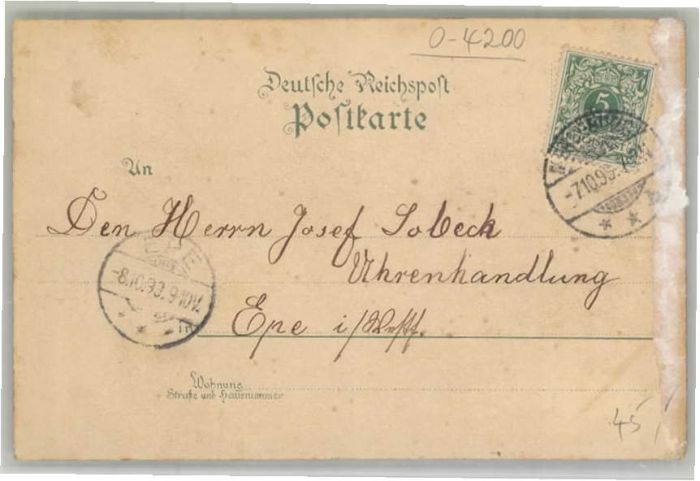 0-4200
Deutsche Reichspost
Postkarte
5
An
Den Herrn Josef Sobeck
Uhrenhandlung
EPE
-8.10.93. 9-10V.
in Epe i/Westf.
Wohnung
Straße und Hausnummer
45